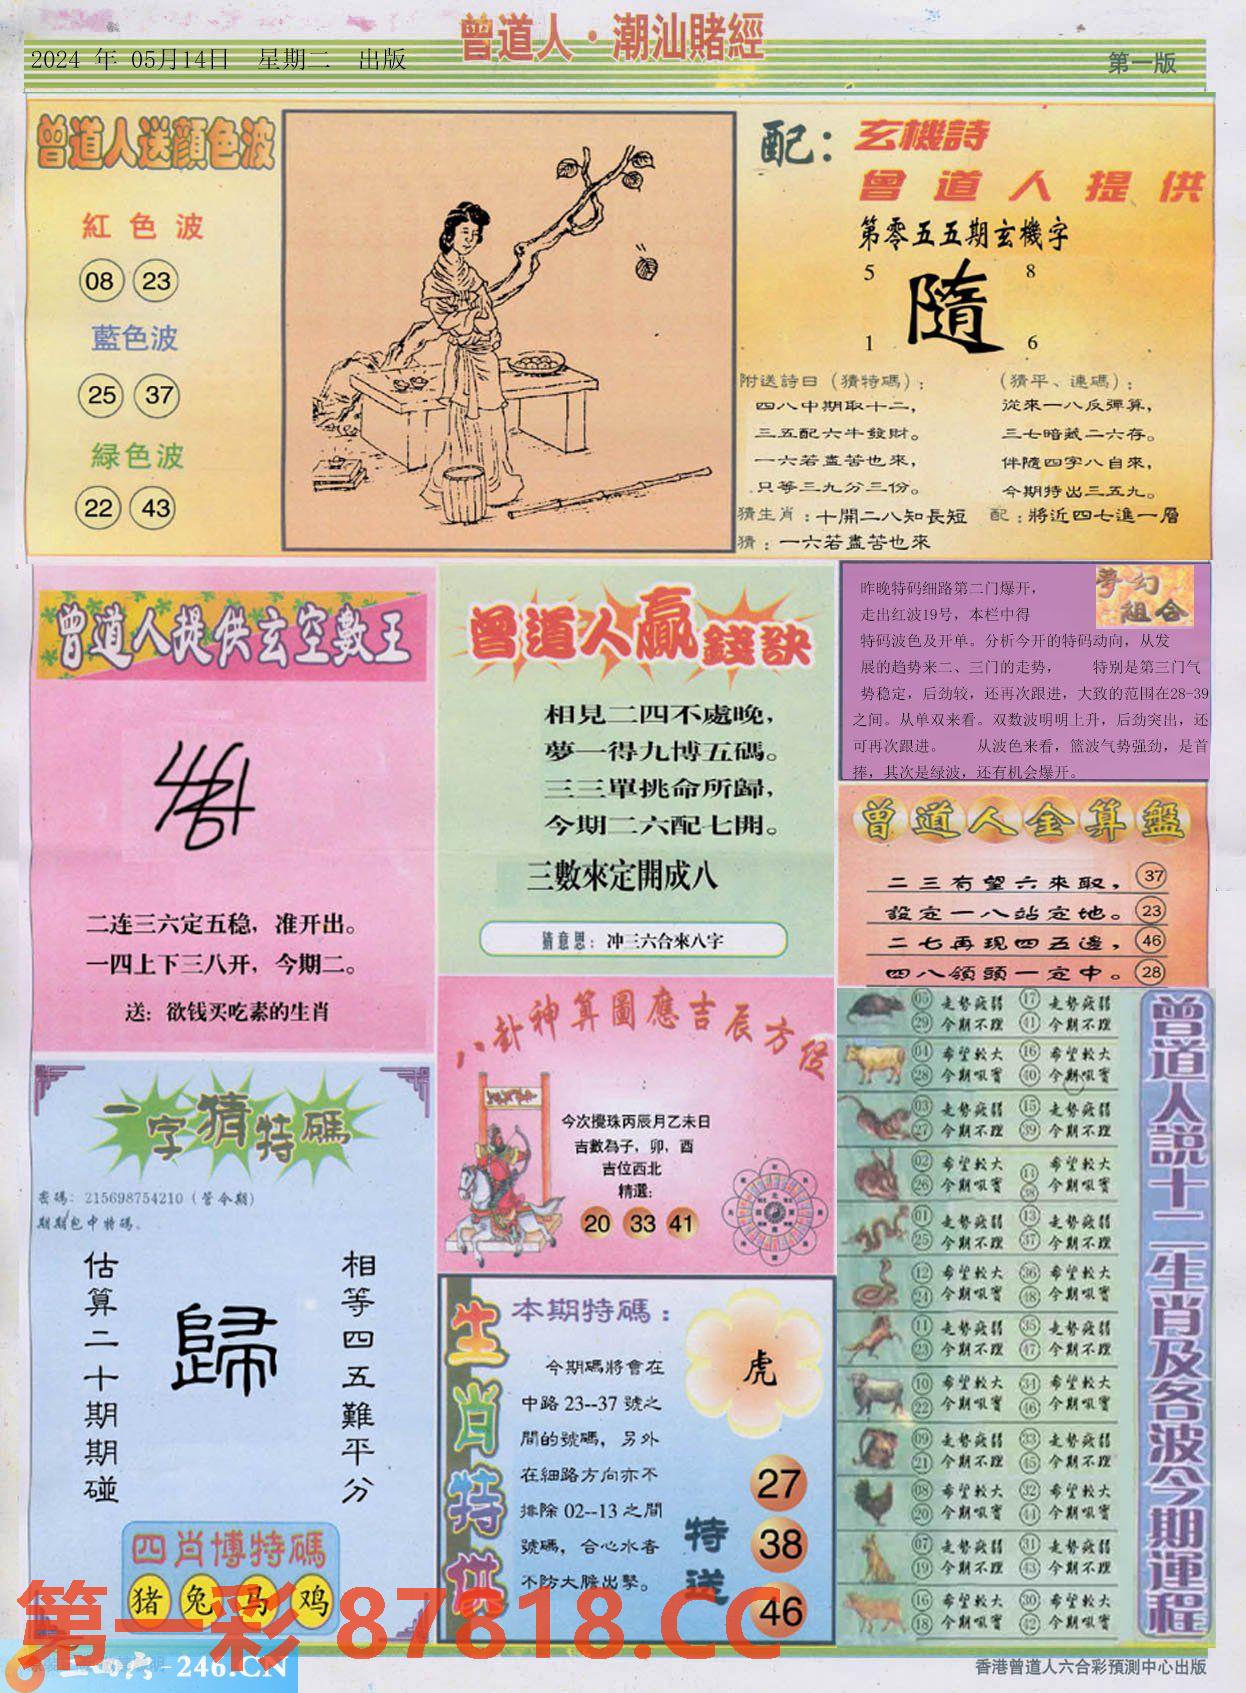 曾道人·潮汕賭經
2024 年 05月14日 星期二 出版
第一版
曾道人送顏色波
紅色波
08 23
藍色波
25 37
緑色波
22 43
配：玄機詩
曾道人提供
第零五五期玄機字
5 8
隨
1 6
附送詩曰（猜特碼）：
四八中期取十二，
三五配六牛發財。
一六若盡苦也來，
只等三九分三份。
（猜平、連碼）：
從來一八反彈算，
三七暗藏二六存。
伴隨四字八自來，
今期特出三五九。
猜生肖：十開二八知長短 配：將近四七進一層
猜：一六若盡苦也來
曾道人提供玄空數王
二连三六定五稳，准开出。
一四上下三八开，今期二。
送：欲钱买吃素的生肖
曾道人贏錢訣
相見二四不處晚，
夢一得九博五碼。
三三單挑命所歸，
今期二六配七開。
三數來定開成八
猜意思：冲三六合來八字
夢幻組合
昨晚特码细路第二门爆开，
走出红波19号，本栏中得
特码波色及开单。分析今开的特码动向，从发
展的趋势来二、三门的走势， 特别是第三门气
势稳定，后劲较，还再次跟进，大致的范围在28-39
之间。从单双来看。双数波明明上升，后劲突出，还
可再次跟进。 从波色来看，篮波气势强劲，是首
捧，其次是绿波，还有机会爆开。
曾道人金算盤
二三有望六來取， 37
設定一八站定地。 23
二七再現四五邊， 46
四八領頭一定中。 28
八卦神算圖應吉辰方位
今次攪珠丙辰月乙未日
吉數為子，卯，酉
吉位西北
精選：
20 33 41
一字猜特碼
密碼：215698754210（管今期）
期期包中特碼。
估算二十期期碰
歸
相等四五難平分
四肖博特碼
猪 兔 马 鸡
生肖特供
本期特碼：
今期碼將會在
中路 23--37 號之
間的號碼，另外
在細路方向亦不
排除 02--13 之間
號碼，合心水者
不防大膽出擊。
虎
特送
27
38
46
曾道人説十二生肖及各波今期運程
05 走勢疲弱 17 走勢疲弱
29 今期不理 41 今期不理
04 希望較大 16 希望較大
28 今期吼實 40 今期吼實
03 走勢疲弱 15 走勢疲弱
27 今期不理 39 今期不理
02 希望較大 14 希望較大
26 今期吼實 38 今期吼實
01 走勢疲弱 13 走勢疲弱
25 今期不理 37 今期不理
12 希望較大 36 希望較大
24 今期吼實 48 今期吼實
11 走勢疲弱 35 走勢疲弱
23 今期不理 47 今期不理
10 希望較大 34 希望較大
22 今期吼實 46 今期吼實
09 走勢疲弱 33 走勢疲弱
21 今期不理 45 今期不理
08 希望較大 32 希望較大
20 今期吼實 44 今期吼實
07 走勢疲弱 31 走勢疲弱
19 今期不理 43 今期不理
16 希望較大 30 希望較大
18 今期吼實 42 今期吼實
第一彩 87818.CC
-246.CN
香港曾道人六合彩預測中心出版